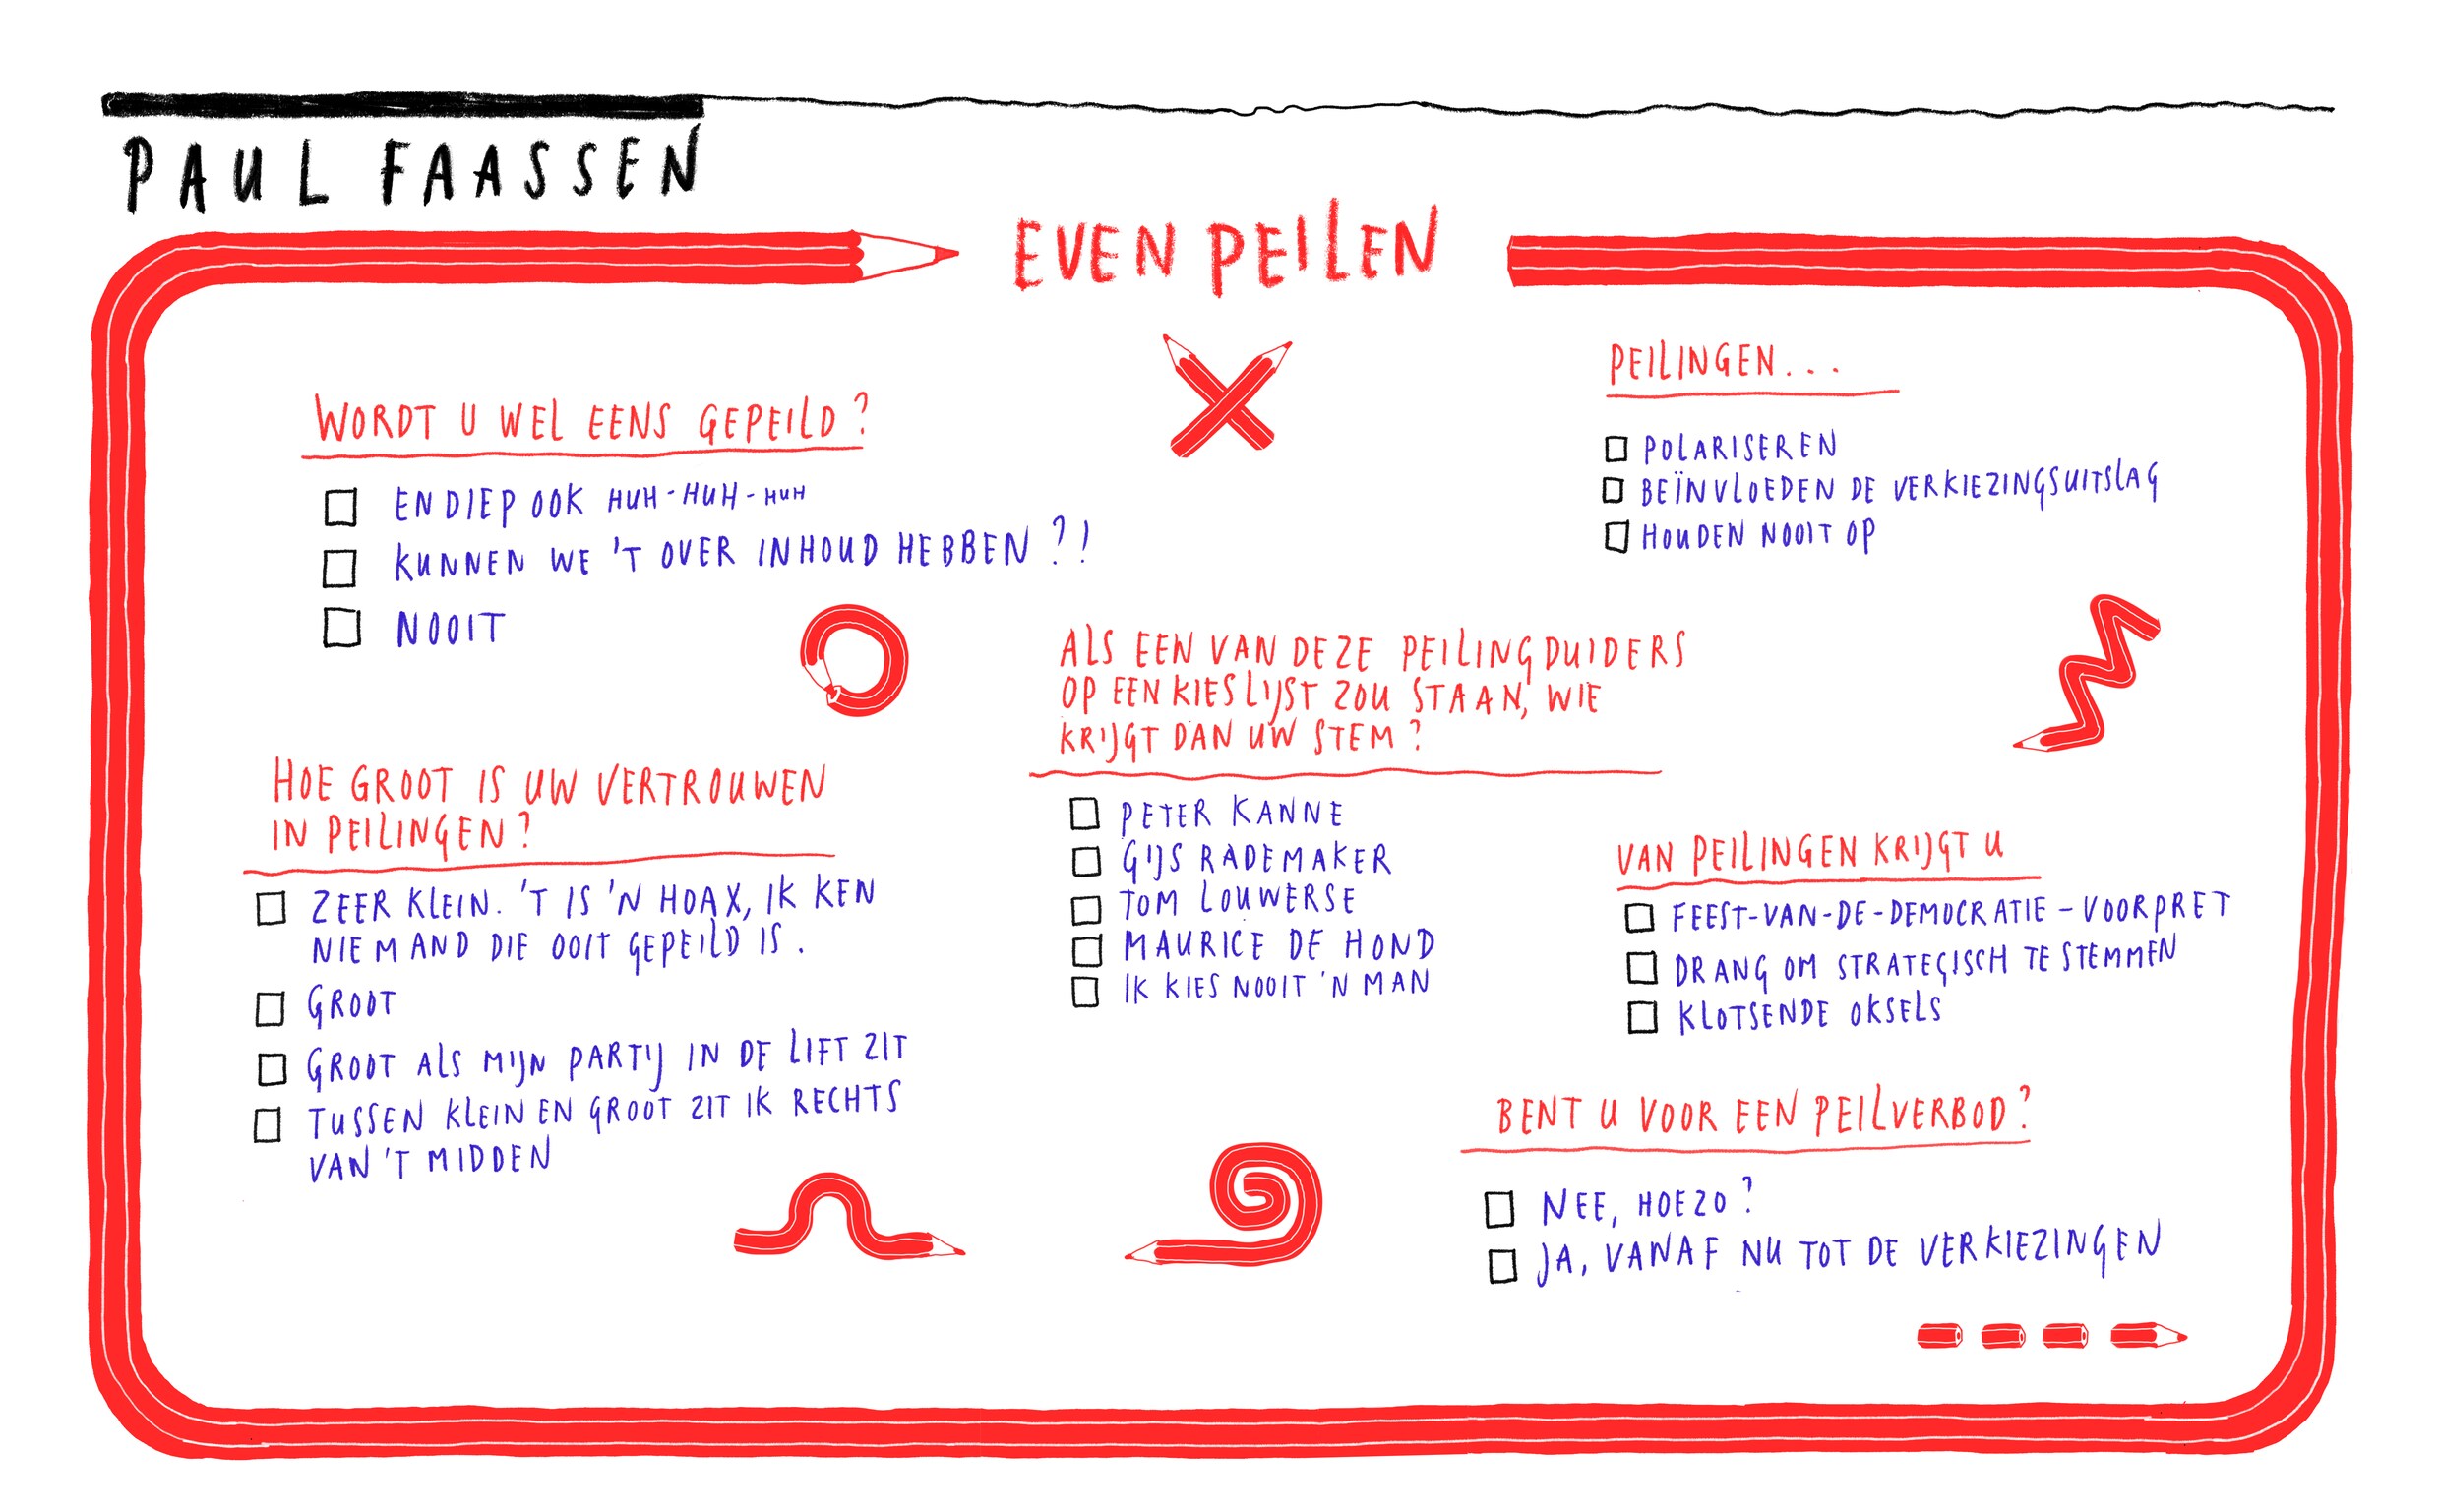 PAUL FAASSEN
EVEN PEILEN
WORDT U WEL EENS GEPEILD?
EN DIEP OOK HUH-HUH-HUH
KUNNEN WE 'T OVER INHOUD HEBBEN?!
NOOIT
HOE GROOT IS UW VERTROUWEN
IN PEILINGEN?
ZEER KLEIN. 'T IS 'N HOAX, IK KEN
NIEMAND DIE OOIT GEPEILD IS.
GROOT
GROOT ALS MIJN PARTIJ IN DE LIFT ZIT
TUSSEN KLEIN EN GROOT ZIT IK RECHTS
VAN 'T MIDDEN
ALS EEN VAN DEZE PEILINGDUIDERS
OP EEN KIESLIJST ZOU STAAN, WIE
KRIJGT DAN UW STEM?
PETER KANNE
GIJS RADEMAKER
TOM LOUWERSE
MAURICE DE HOND
IK KIES NOOIT 'N MAN
PEILINGEN...
POLARISEREN
BEÏNVLOEDEN DE VERKIEZINGSUITSLAG
HOUDEN NOOIT OP
VAN PEILINGEN KRIJGT U
FEEST-VAN-DE-DEMOCRATIE-VOORPRET
DRANG OM STRATEGISCH TE STEMMEN
KLOTSENDE OKSELS
BENT U VOOR EEN PEILVERBOD?
NEE, HOEZO?
JA, VANAF NU TOT DE VERKIEZINGEN